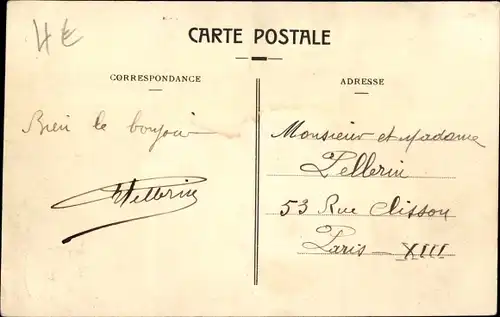 4€
CARTE POSTALE
CORRESPONDANCE
Bien le bonjour
Pellerin
ADRESSE
Monsieur et Madame
Pellerin
53 Rue Clisson
Paris — XIII